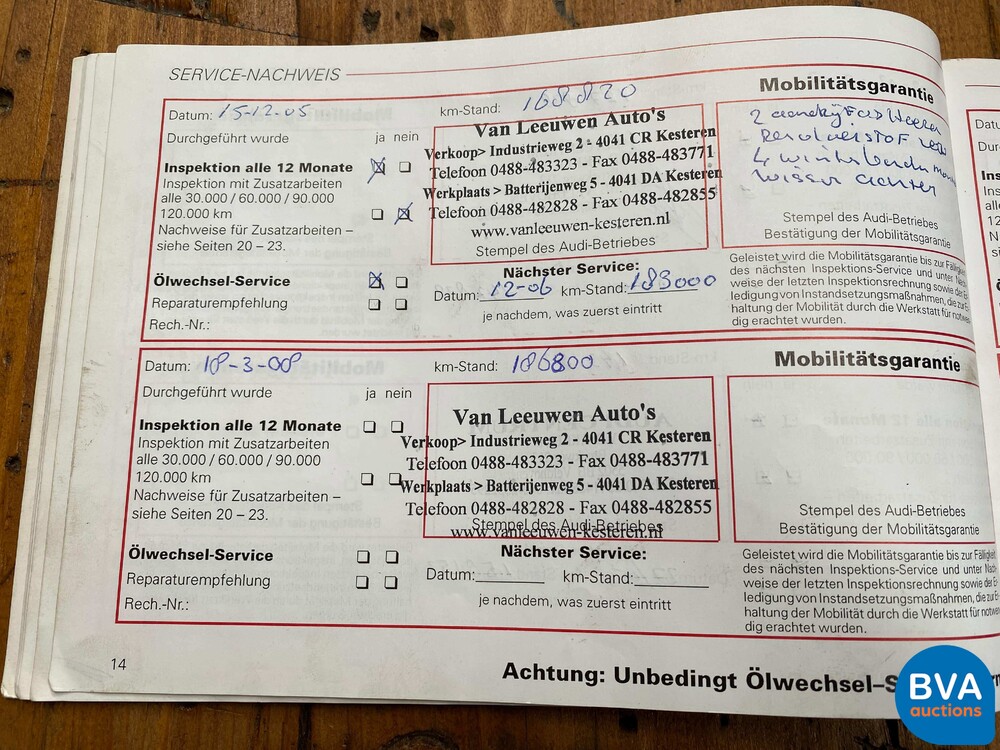 SERVICE-NACHWEIS
Datum: 15-12-05
km-Stand: 168820
Mobilitätsgarantie
Durchgeführt wurde ja nein
Van Leeuwen Auto's
Verkoop> Industrieweg 2 - 4041 CR Kesteren
Telefoon 0488-483323 - Fax 0488-483771
Werkplaats > Batterijenweg 5 - 4041 DA Kesteren
Telefoon 0488-482828 - Fax 0488-482855
www.vanleeuwen-kesteren.nl
Stempel des Audi-Betriebes
2
4
wisser achter
Inspektion alle 12 Monate
Inspektion mit Zusatzarbeiten
alle 30.000 / 60.000 / 90.000
120.000 km
Nachweise für Zusatzarbeiten –
siehe Seiten 20 – 23.
Stempel des Audi-Betriebes
Bestätigung der Mobilitätsgarantie
Ölwechsel-Service
Reparaturempfehlung
Rech.-Nr.:
Nächster Service:
Datum: 12-06 km-Stand: 183000
je nachdem, was zuerst eintritt
Geleistet wird die Mobilitätsgarantie bis zur
des nächsten Inspektions-Service und unter
weise der letzten Inspektionsrechnung sowie der
ledigung von Instandsetzungsmaßnahmen, die
haltung der Mobilität durch die Werkstatt für
dig erachtet wurden.
Datum: 18-3-08
km-Stand: 186800
Mobilitätsgarantie
Durchgeführt wurde ja nein
Van Leeuwen Auto's
Verkoop> Industrieweg 2 - 4041 CR Kesteren
Telefoon 0488-483323 - Fax 0488-483771
Werkplaats > Batterijenweg 5 - 4041 DA Kesteren
Telefoon 0488-482828 - Fax 0488-482855
Stempel des Audi-Betriebes
www.vanleeuwen-kesteren.nl
Inspektion alle 12 Monate
Inspektion mit Zusatzarbeiten
alle 30.000 / 60.000 / 90.000
120.000 km
Nachweise für Zusatzarbeiten –
siehe Seiten 20 – 23.
Stempel des Audi-Betriebes
Bestätigung der Mobilitätsgarantie
Ölwechsel-Service
Reparaturempfehlung
Rech.-Nr.:
Nächster Service:
Datum: km-Stand:
je nachdem, was zuerst eintritt
Geleistet wird die Mobilitätsgarantie bis zur
des nächsten Inspektions-Service und unter
weise der letzten Inspektionsrechnung sowie der
ledigung von Instandsetzungsmaßnahmen, die
haltung der Mobilität durch die Werkstatt für
dig erachtet wurden.
14
Achtung: Unbedingt Ölwechsel–S
BVA
auctions